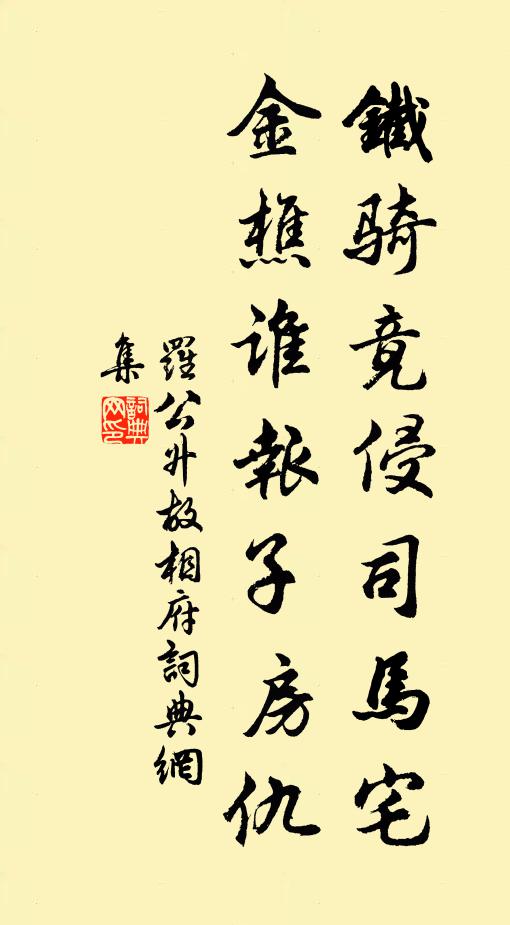 鐵騎竟侵司馬宅
金樵誰報子房仇
羅公升故相府詞典網
集
詞典網印